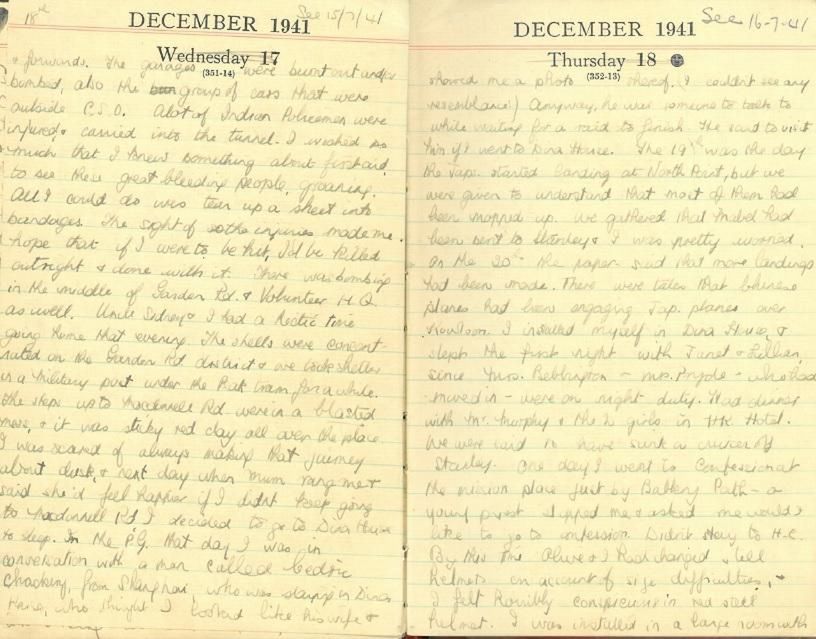 18th
See 15/7/41
DECEMBER 1941
Wednesday 17
(351-14)
& forwards. The garages were burnt out and/or
bombed, also the group of cars that were
outside C.S.O. A lot of Indian Policemen were
injured & carried into the tunnel. I wished so
much that I knew something about first aid,
to see these great bleeding people, groaning.
All I could do was tear up a sheet into
bandages. The sight of some injuries made me
hope that if I were to be hit, I'd be killed
outright & done with it. There was bombing
in the middle of Garden Rd. & Volunteer H.Q.
as well. Uncle Sidney & I had a hectic time
going home that evening. The shells were concent-
rated on the Garden Rd district & we took shelter
in a military post under the Peak tram for a while.
The steps up to Macdonnell Rd were in a blasted
mess, & it was sticky red clay all over the place.
I was scared of always making that journey
about dusk, & next day when Mum rang me &
said she'd feel happier if I didn't keep going
to Macdonnell Rd I decided to go to Dina House
to sleep. In the P.G. that day I was in
conversation with a man called Cedric
from Shanghai, who was staying in Dina
House, who thought I looked like his wife &
See 16-7-41
DECEMBER 1941
Thursday 18
(352-13)
showed me a photo thereof. (I couldn't see any
resemblance!) Anyway, he was someone to talk to
while waiting for a raid to finish. He said to visit
him if I went to Dina House. The 19th was the day
the Japs. started landing at North Point, but we
were given to understand that most of them had
been mopped up. We gathered that Mabel had
been sent to Stanley & I was pretty worried.
On the 20th the paper said that more landings
had been made. There were tales that Chinese
planes had been engaging Jap. planes over
Kowloon. I installed myself in Dina House, &
slept the first night with Janet & Lillian,
since Mrs. Bebbington - Mrs. Pryde - who had
moved in - were on night duty. Had dinner
with Mr. Murphy & the 2 girls in H.K. Hotel.
We were said to have sunk a cruiser off
Stanley. One day I went to Confession at
the mission place just by Battery Path - a
young priest stopped me & asked me would I
like to go to confession. Didn't stay to H.C.
By this time Olive & I had changed steel
helmets on account of size difficulties, &
I felt horribly conspicuous in red steel
helmet. I was installed in a large room with